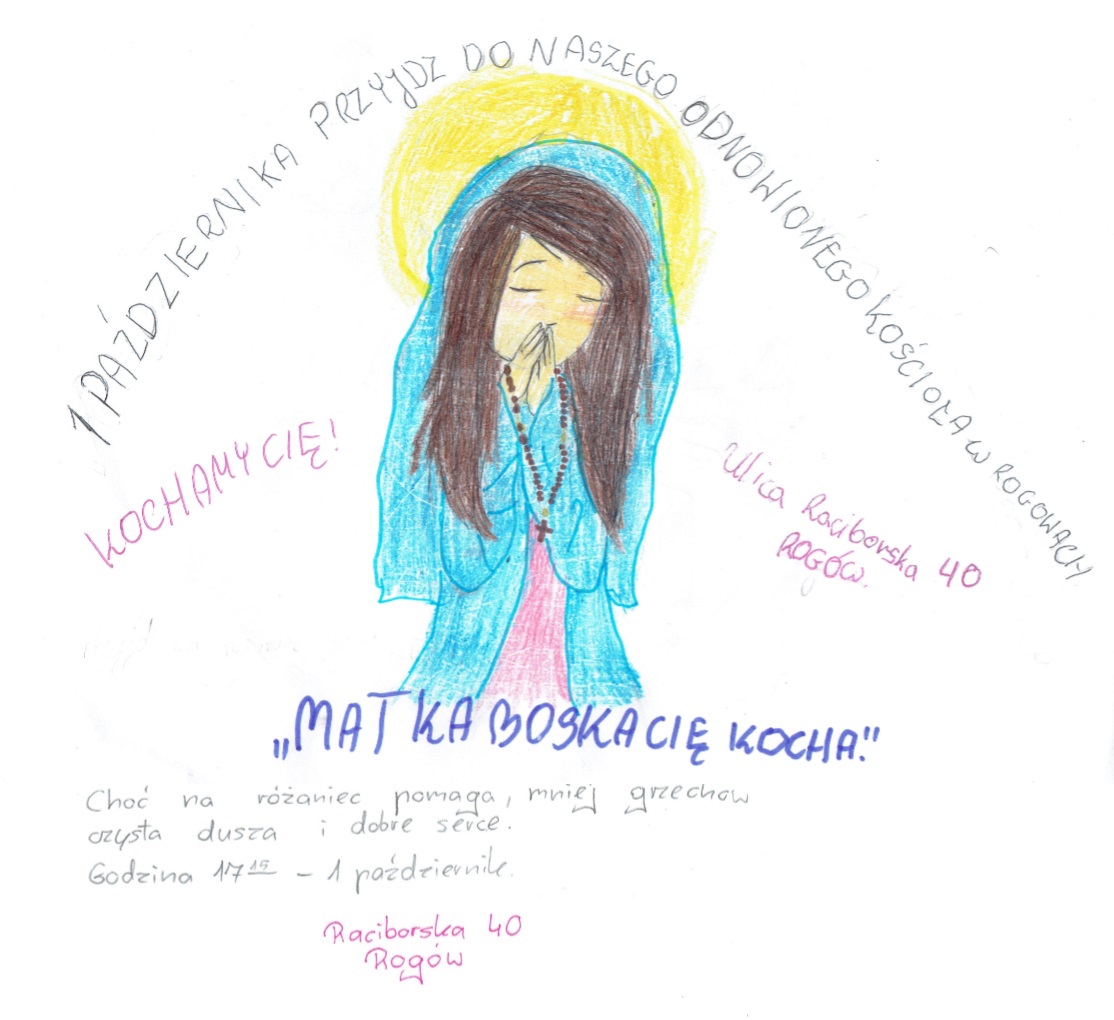 1 PAŹDZIERNIKA PRZYJDZ DO NASZEGO ODNOWIONEGO KOŚCIOŁA W ROGOWACH
KOCHAMY CIĘ!
Ulica Raciborska 40
ROGÓW.
„MATKA BOSKA CIĘ KOCHA."
Choć na różaniec pomaga, mniej grzechow
czysta dusza i dobre serce.
Godzina 17 15 – 1 październik.
Raciborska 40
Rogów